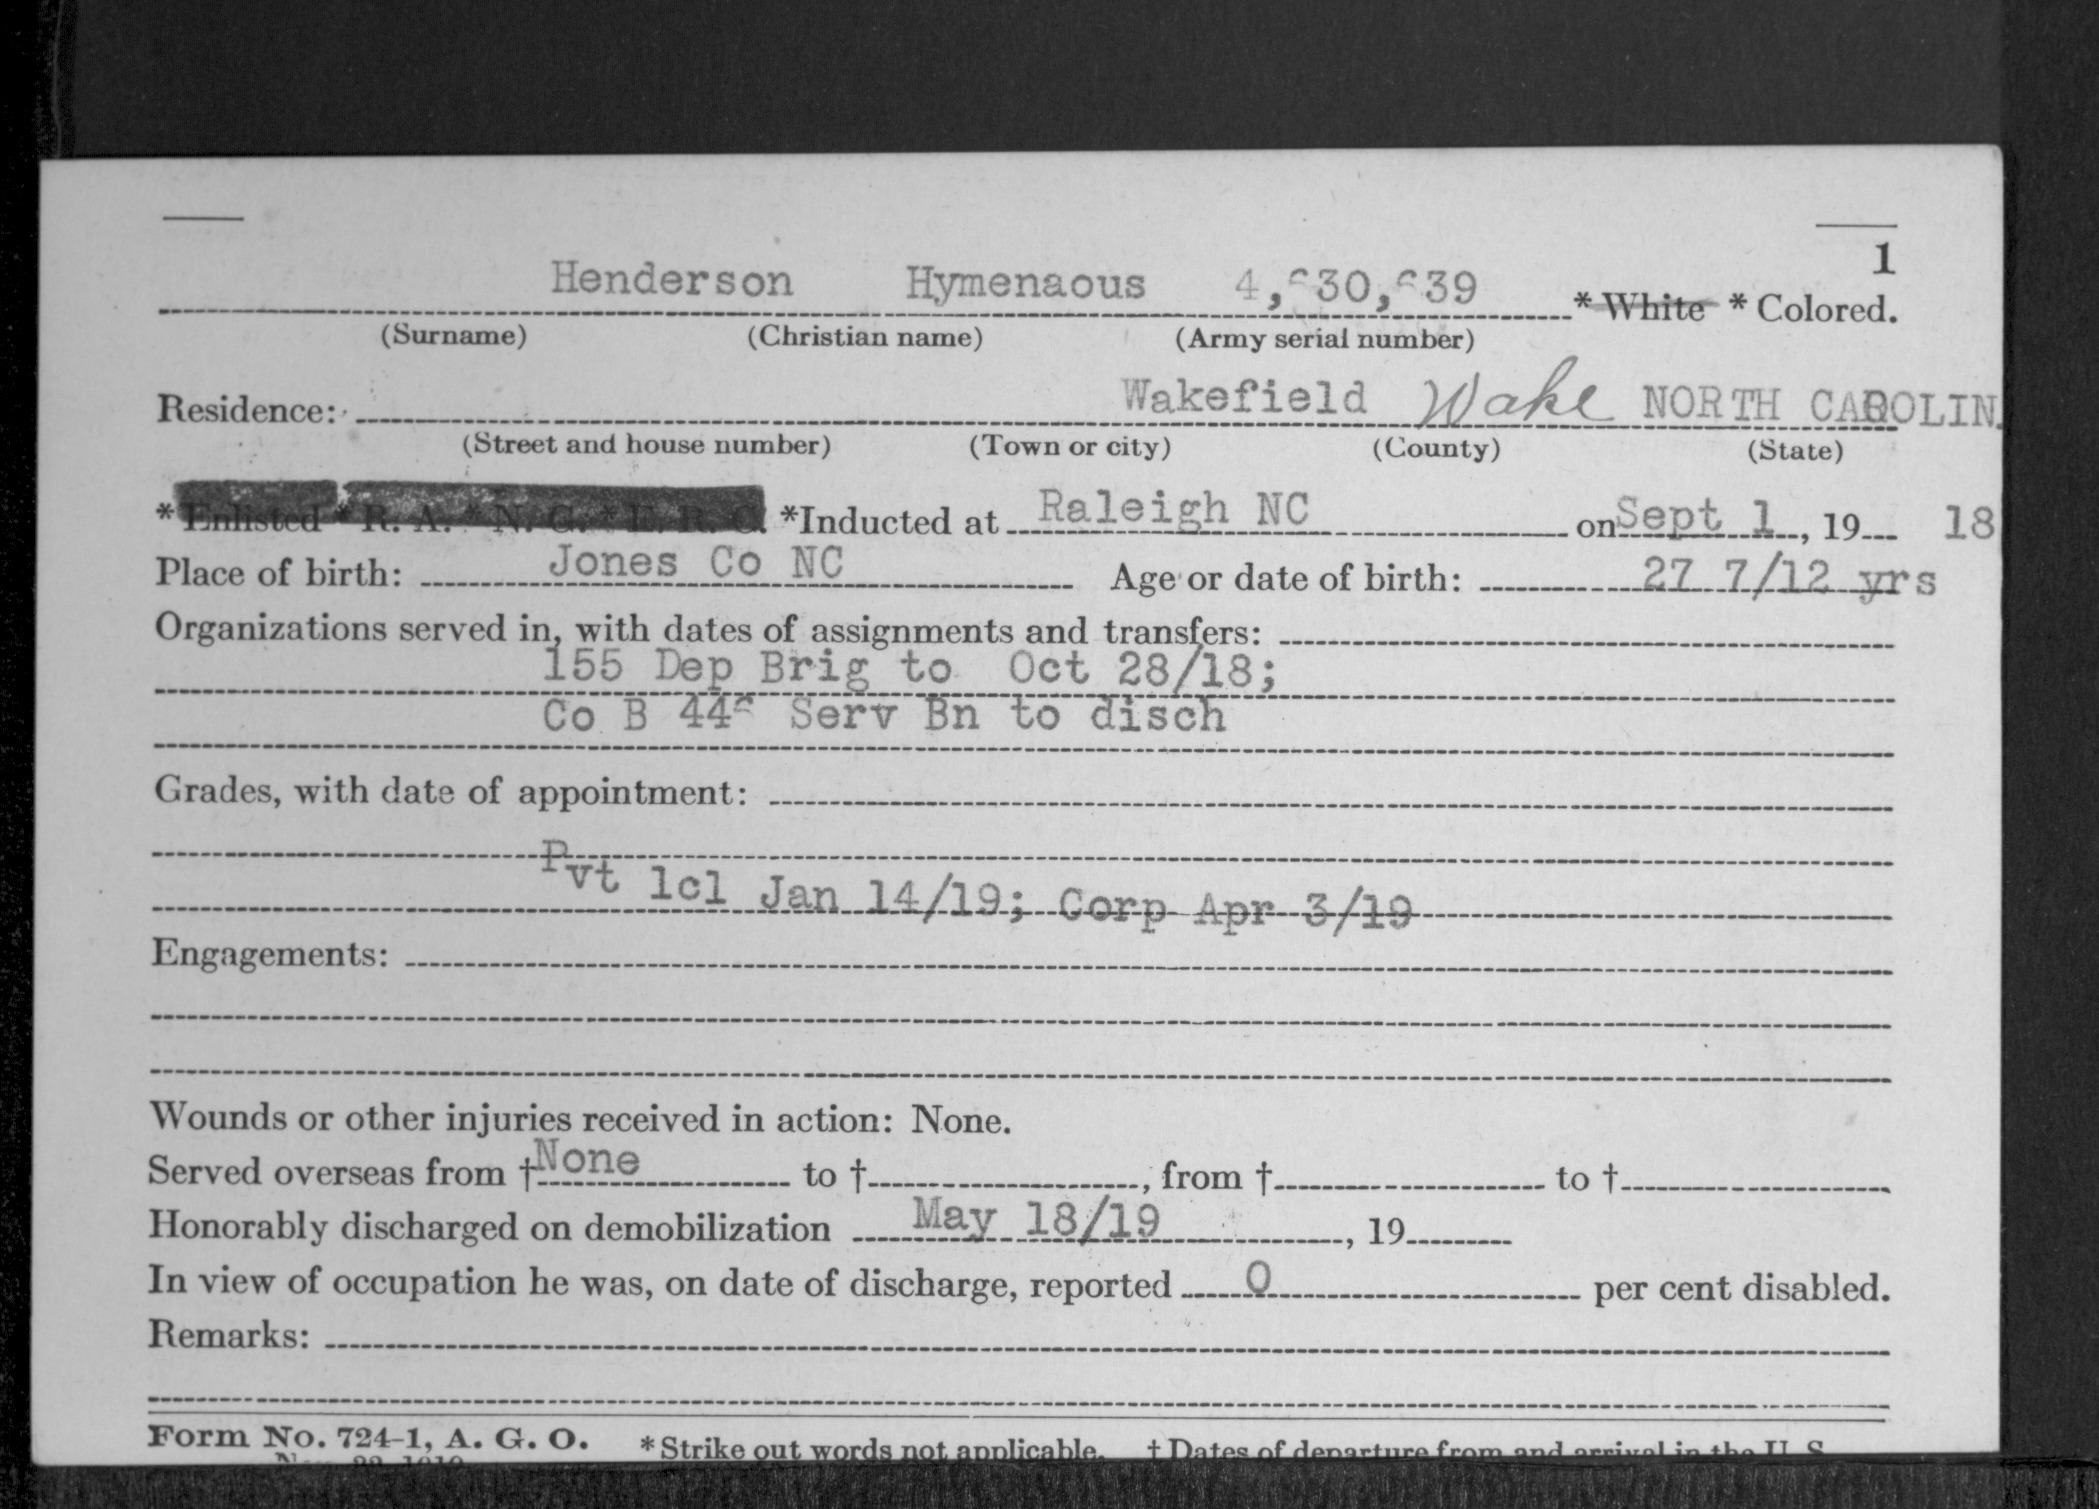 1
Henderson Hymenaous 4,630,639 * White * Colored.
(Surname) (Christian name) (Army serial number)
Residence: Wakefield Wake NORTH CAROLIN
(Street and house number) (Town or city) (County) (State)
* Enlisted * R. A. * N. G. * E. R. C. *Inducted at Raleigh NC on Sept 1, 19 18
Place of birth: Jones Co NC Age or date of birth: 27 7/12 yrs
Organizations served in, with dates of assignments and transfers:
155 Dep Brig to Oct 28/18;
Co B 446 Serv Bn to disch
Grades, with date of appointment:
Pvt 1cl Jan 14/19; Corp Apr 3/19
Engagements:
Wounds or other injuries received in action: None.
Served overseas from † None to †, from † to †
Honorably discharged on demobilization May 18/19, 19
In view of occupation he was, on date of discharge, reported 0 per cent disabled.
Remarks:
Form No. 724-1, A. G. O. * Strike out words not applicable. † Dates of departure from and arrival in the U. S.